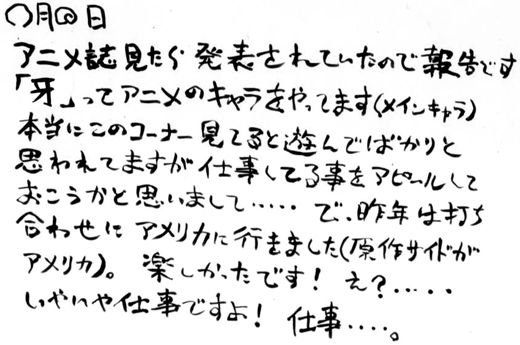 〇月〇日
アニメ誌見たら発表されていたので報告です
「牙」ってアニメのキャラをやってます(メインキャラ)
本当にこのコーナー見てると遊んでばかりと
思われてますが仕事してる事をアピールして
おこうかと思いまして……で、昨年は打ち
合わせにアメリカに行きました(原作サイドが
アメリカ)。楽しかったです！え？……
いやいや仕事ですよ！仕事……。